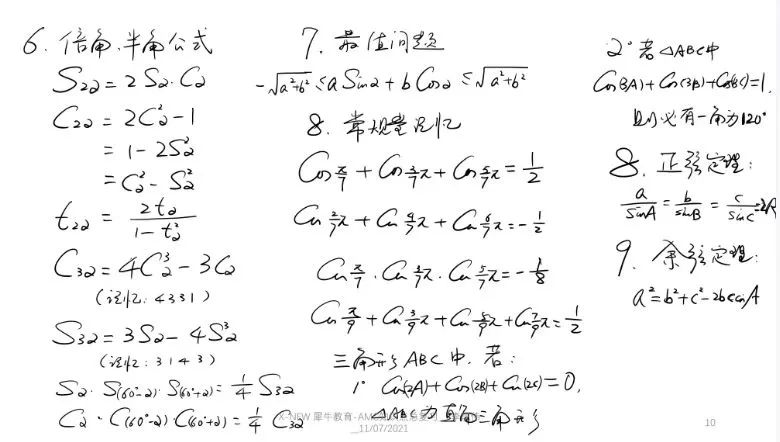 6. 倍角.半角公式
S₂α = 2Sα·Cα
C₂α = 2Cα² - 1
= 1 - 2Sα²
= Cα² - Sα²
t₂α = 2tα / (1 - tα²)
C₃α = 4Cα³ - 3Cα
(记忆: 4331)
S₃α = 3Sα - 4Sα³
(记忆: 3143)
Sα·S(60°-α)·S(60°+α) = 1/4 S₃α
Cα·C(60°-α)C(60°+α) = 1/4 C₃α
7. 最值问题
-√(a²+b²) ≤ a Sinα + b Cosα ≤ √(a²+b²)
8. 常规量记忆
Cos π/7 + Cos 3/7π + Cos 5/7π = 1/2
Cos 2/7π + Cos 4/7π + Cos 6/7π = -1/2
Cos π/7 · Cos 3/7π · Cos 5/7π = -1/8
Cos π/9 + Cos 3/9π + Cos 5/9π + Cos 7/9π = 1/2
三角形ABC中,若:
1° Cos(2A)+Cos(2B)+Cos(2C)=0,
△ABC为直角三角形
2° 若△ABC中
Cos(3A)+Cos(3B)+Cos(3C)=1,
则必有一角为120°
8. 正弦定理:
a/sinA = b/sinB = c/sinC = 2R
9. 余弦定理:
a² = b² + c² - 2bc cosA
X-NEW 犀牛教育-AM
11/07/2021
10